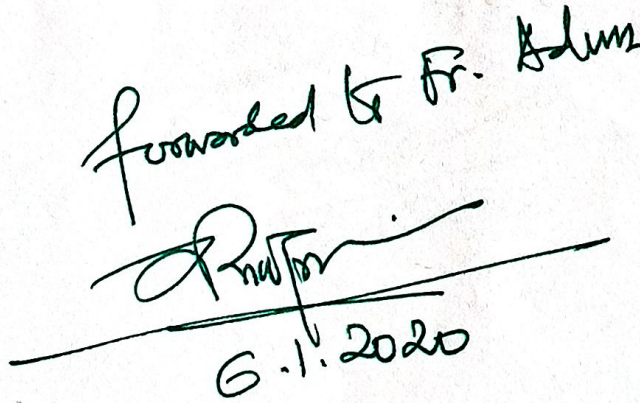 forwarded to Fr. Adms
6.1.2020